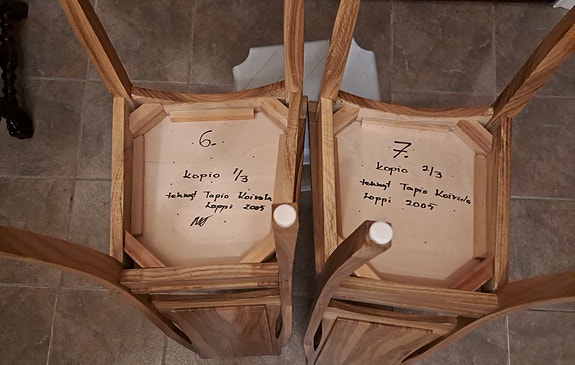 6.
kopio 1/3
tehnyt Tapio Koivula
Loppi 2005
7.
kopio 2/3
tehnyt Tapio Koivula
Loppi 2005